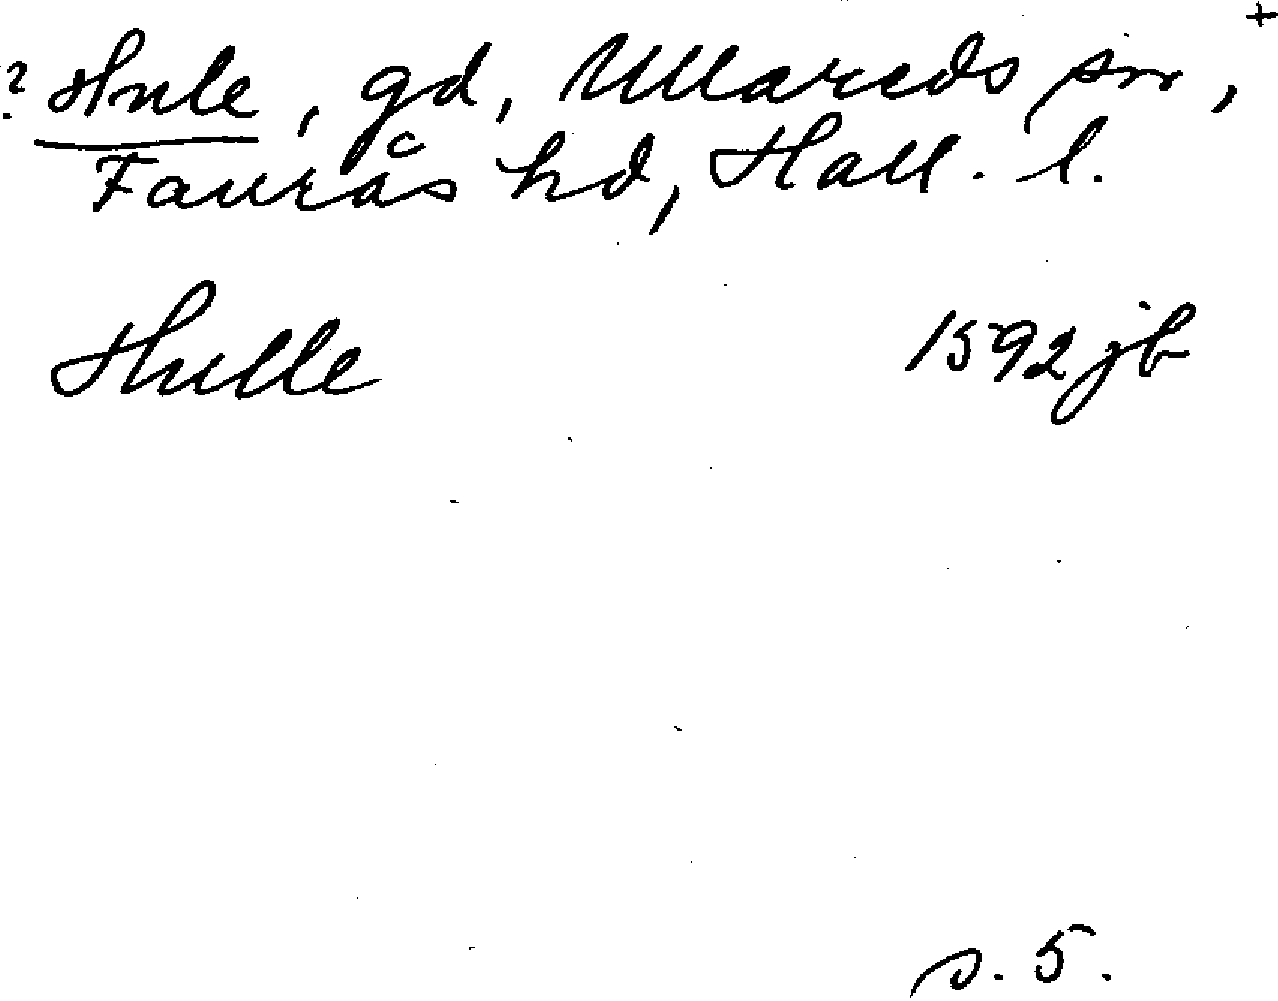 +
? Hule, gd, Ullareds sn,
Faurås hd, Hall. l.
Hulle 1592 jb
s. 5.